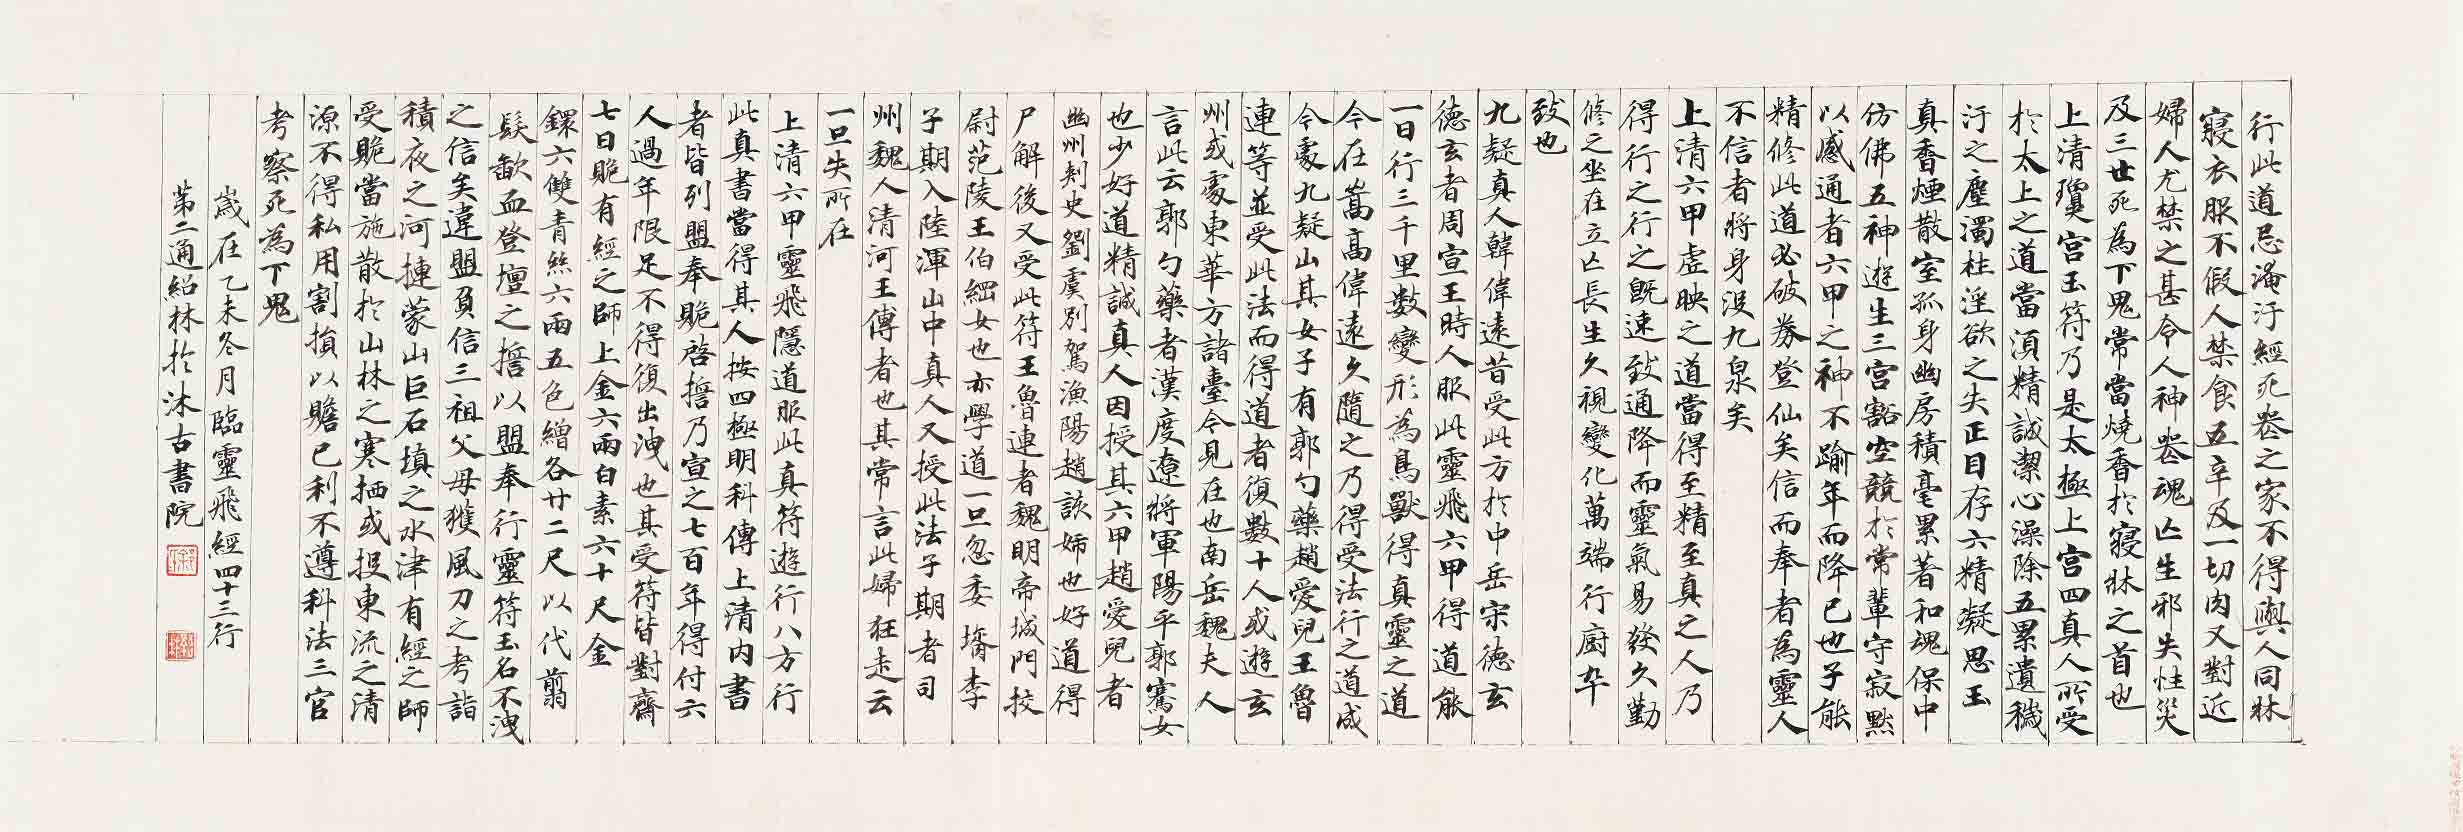 行此道忌淹汙經死喪之家不得與人同牀
寢衣服不假人禁食五辛及一切肉又對近
婦人尤禁之甚令人神喪魂亡生邪失性災
及三世死為下鬼常當燒香於寢牀之首也
上清瓊宮玉符乃是太極上宮四真人所受
於太上之道當須精誠潔心澡除五累遺穢
汙之塵濁杜淫欲之失正目存六精凝思玉
真香煙散室孤身幽房積毫累著和魂保中
仿佛五神遊生三宮豁空競於常輩守寂默
以感通者六甲之神不踰年而降已也子能
精修此道必破券登仙矣信而奉者為靈人
不信者將身沒九泉矣
上清六甲虛映之道當得至精至真之人乃
得行之行之既速致通降而靈氣易發久勤
修之坐在立亡長生久視變化萬端行廚卒
致也
九疑真人韓偉遠昔受此方於中岳宋德玄
德玄者周宣王時人服此靈飛六甲得道能
一日行三千里數變形為鳥獸得真靈之道
今在嵩高偉遠久隨之乃得受法行之道成
今處九疑山其女子有郭勺藥趙愛兒王魯
連等並受此法而得道者復數十人或遊玄
州或處東華方諸臺今見在也南岳魏夫人
言此云郭勺藥者漢度遼將軍陽平郭騫女
也少好道精誠真人因授其六甲趙愛兒者
幽州刺史劉虞別駕漁陽趙該姊也好道得
尸解後又受此符王魯連者魏明帝城門挍
尉范陵王伯綱女也亦學道一旦忽委壻李
子期入陸渾山中真人又授此法子期者司
州魏人清河王傅者也其常言此婦狂走云
一旦失所在
上清六甲靈飛隱道服此真符遊行八方行
此真書當得其人按四極明科傳上清內書
者皆列盟奉賝啓誓乃宣之七百年得付六
人過年限足不得復出洩也其受符皆對齋
七日賝有經之師上金六兩白素六十尺金
鐶六雙青絲六兩五色繒各廿二尺以代翦
髮歃血登壇之誓以盟奉行靈符玉名不洩
之信矣違盟負信三祖父母獲風刀之考詣
積夜之河摙蒙山巨石填之水津有經之師
受賝當施散於山林之寒栖或投東流之清
源不得私用割損以贍己利不遵科法三官
考察死為下鬼
歲在乙未冬月臨靈飛經四十三行
第二通紹林於沐古書院